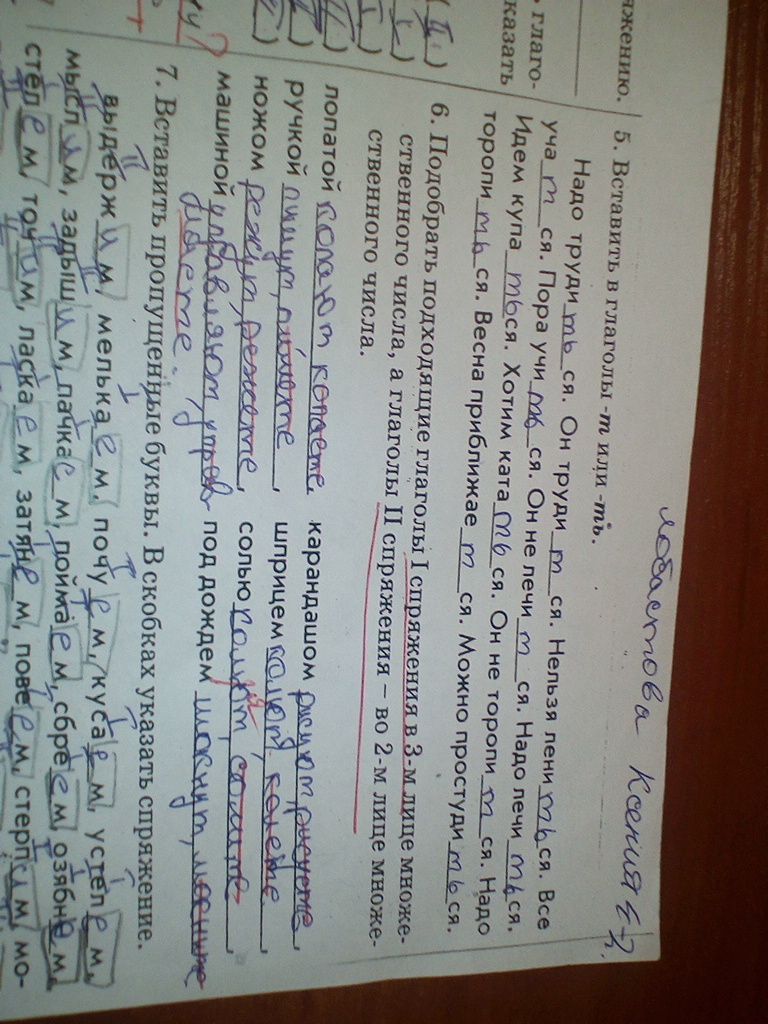 лобастова Ксения
яжению.
глаго-
казать
5. Вставить в глаголы -т или -ть.
Надо трудиться. Он трудится. Нельзя лениться. Все
учатся. Пора учиться. Он не лечится. Надо лечиться.
Идем купаться. Хотим кататься. Он не торопится. Надо
торопиться. Весна приближается. Можно простудиться.
6. Подобрать подходящие глаголы I спряжения в 3-м лице множе-
ственного числа, а глаголы II спряжения – во 2-м лице множе-
ственного числа.
лопатой копают копаете, карандашом рисуют рисуете,
ручкой пишут, пишете, шприцем колют колете,
ножом режут, режете, солью солят, солите,
машиной управляют, управ под дождем мокнут,
ляете.
7. Вставить пропущенные буквы. В скобках указать спряжение.
выдержим, мелькаем, почуем, кусаем, устелем,
мыслим, задышим, пачкаем, поймаем, сбреем, озябнем,
стелем, точим, ласкаем, затянем, повеем, стерпим, мо-